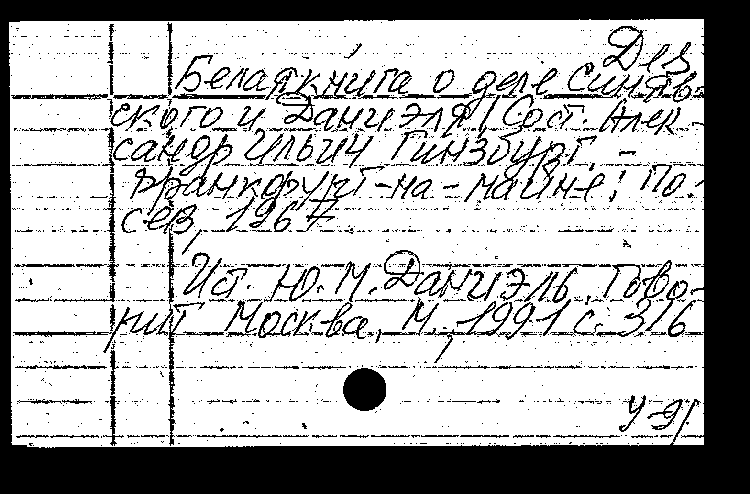 Дез
Белая книга о деле Синяв-
ского и Даниэля / Сост. Алек-
сандр Ильич Гинзбург. -
Франкфурт-на-майне: По-
сев, 1967
Ист. Ю. М. Даниэль. Гово-
рит Москва, М., 1991 с. 316
У-91